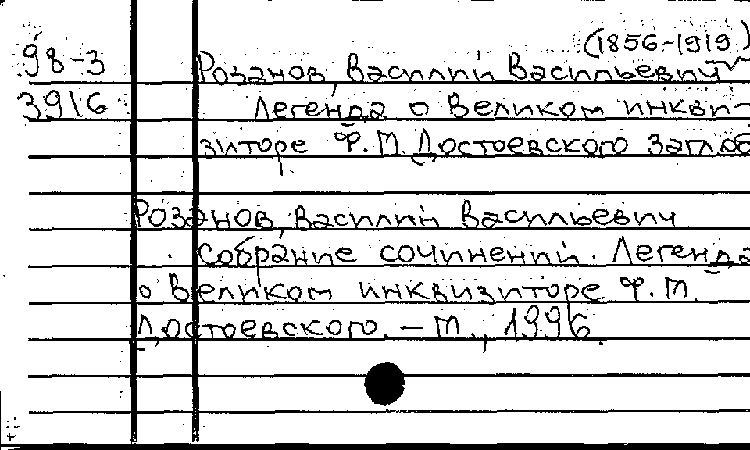 (1856-1919)
98-3 Розанов, Василий Васильевич
3916 Легенда о Великом инкви-
зиторе Ф.М. Достоевского Заглав
Розанов, Василий Васильевич
Собрание сочинений. Легенда
о Великом инквизиторе Ф.М.
Достоевского. – М., 1996.